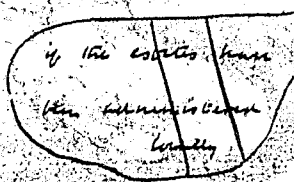 if the estates have
been administered
locally